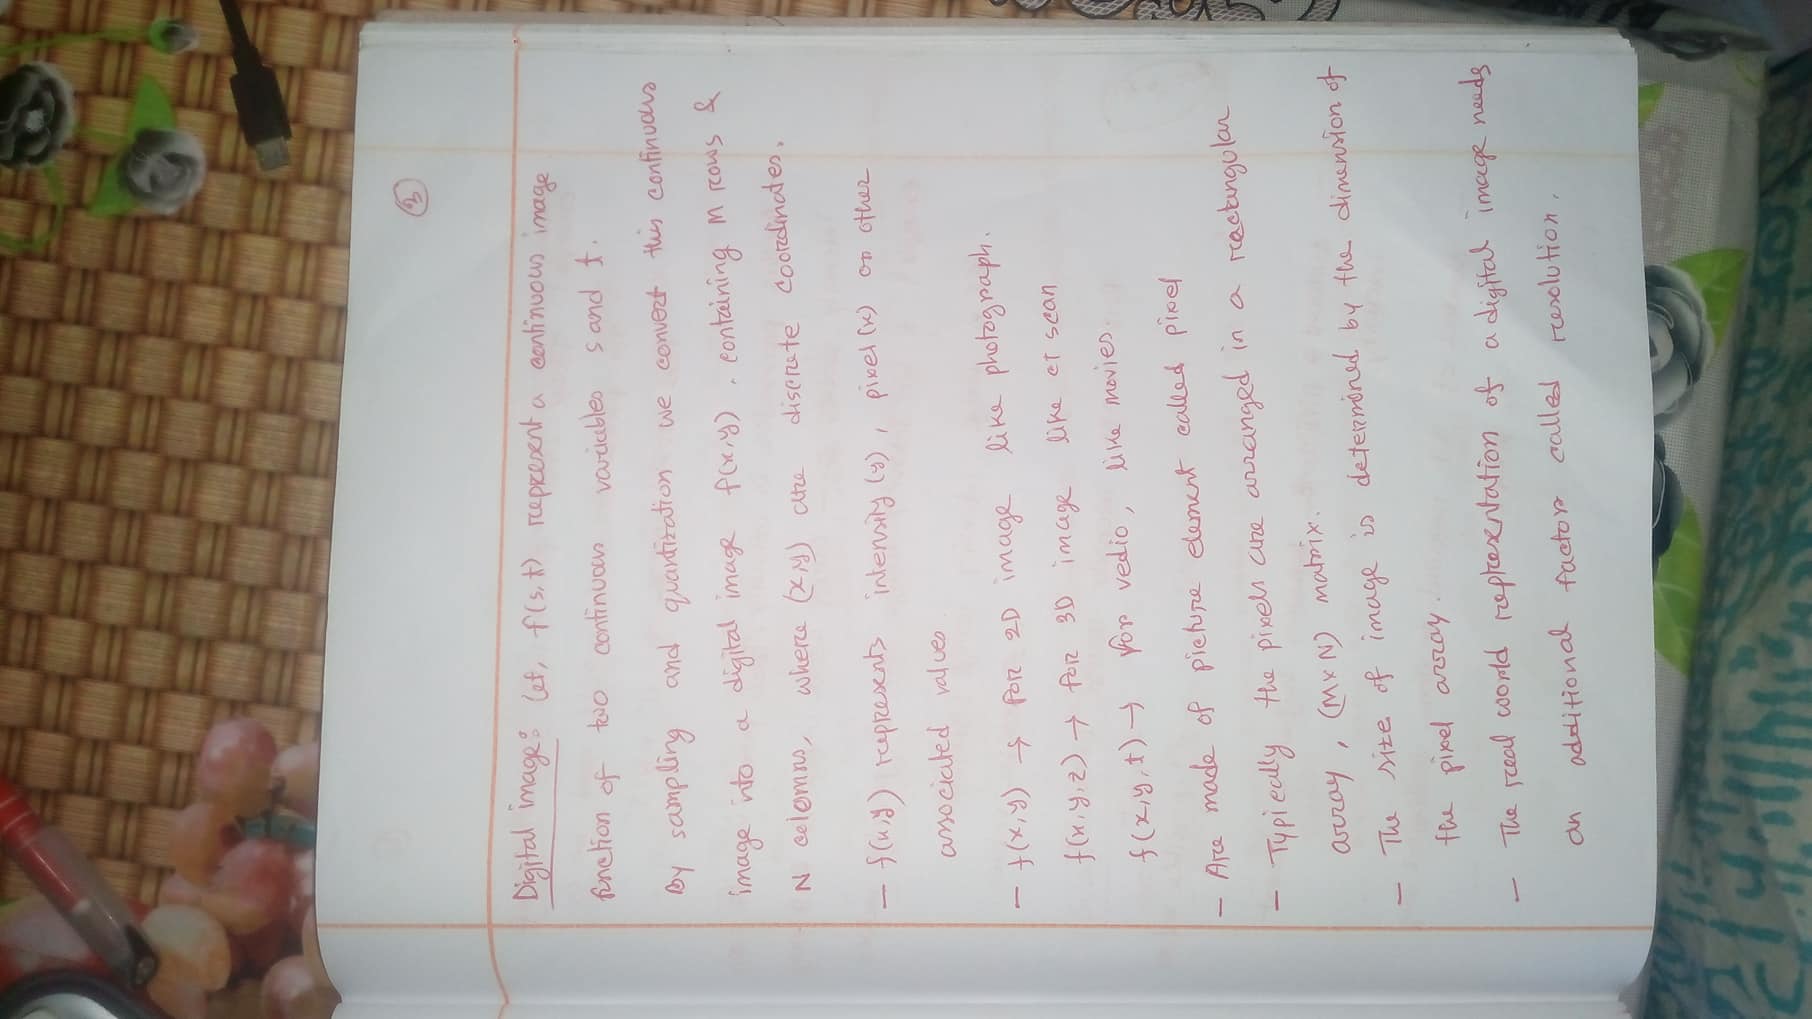 3
Digital image: Let, f(s,t) represent a continuous image
function of two continuous variables s and t.
By sampling and quantization we convert this continuous
image into a digital image f(x,y), containing M rows &
N colomns, where (x,y) are discrete coordinates.
- f(x,y) represents intensity (y), pixel (x) or other
associated values
- f(x,y) → for 2D image like photograph.
f(x,y,z) → for 3D image like CT scan
f(x,y,t) → for vedio, like movies.
- Are made of picture element called pixel
- Typically the pixels are arranged in a rectangular
array, (M×N) matrix.
- The size of image is determined by the dimension of
the pixel array.
- The real world representation of a digital image needs
an additional factor called resolution.